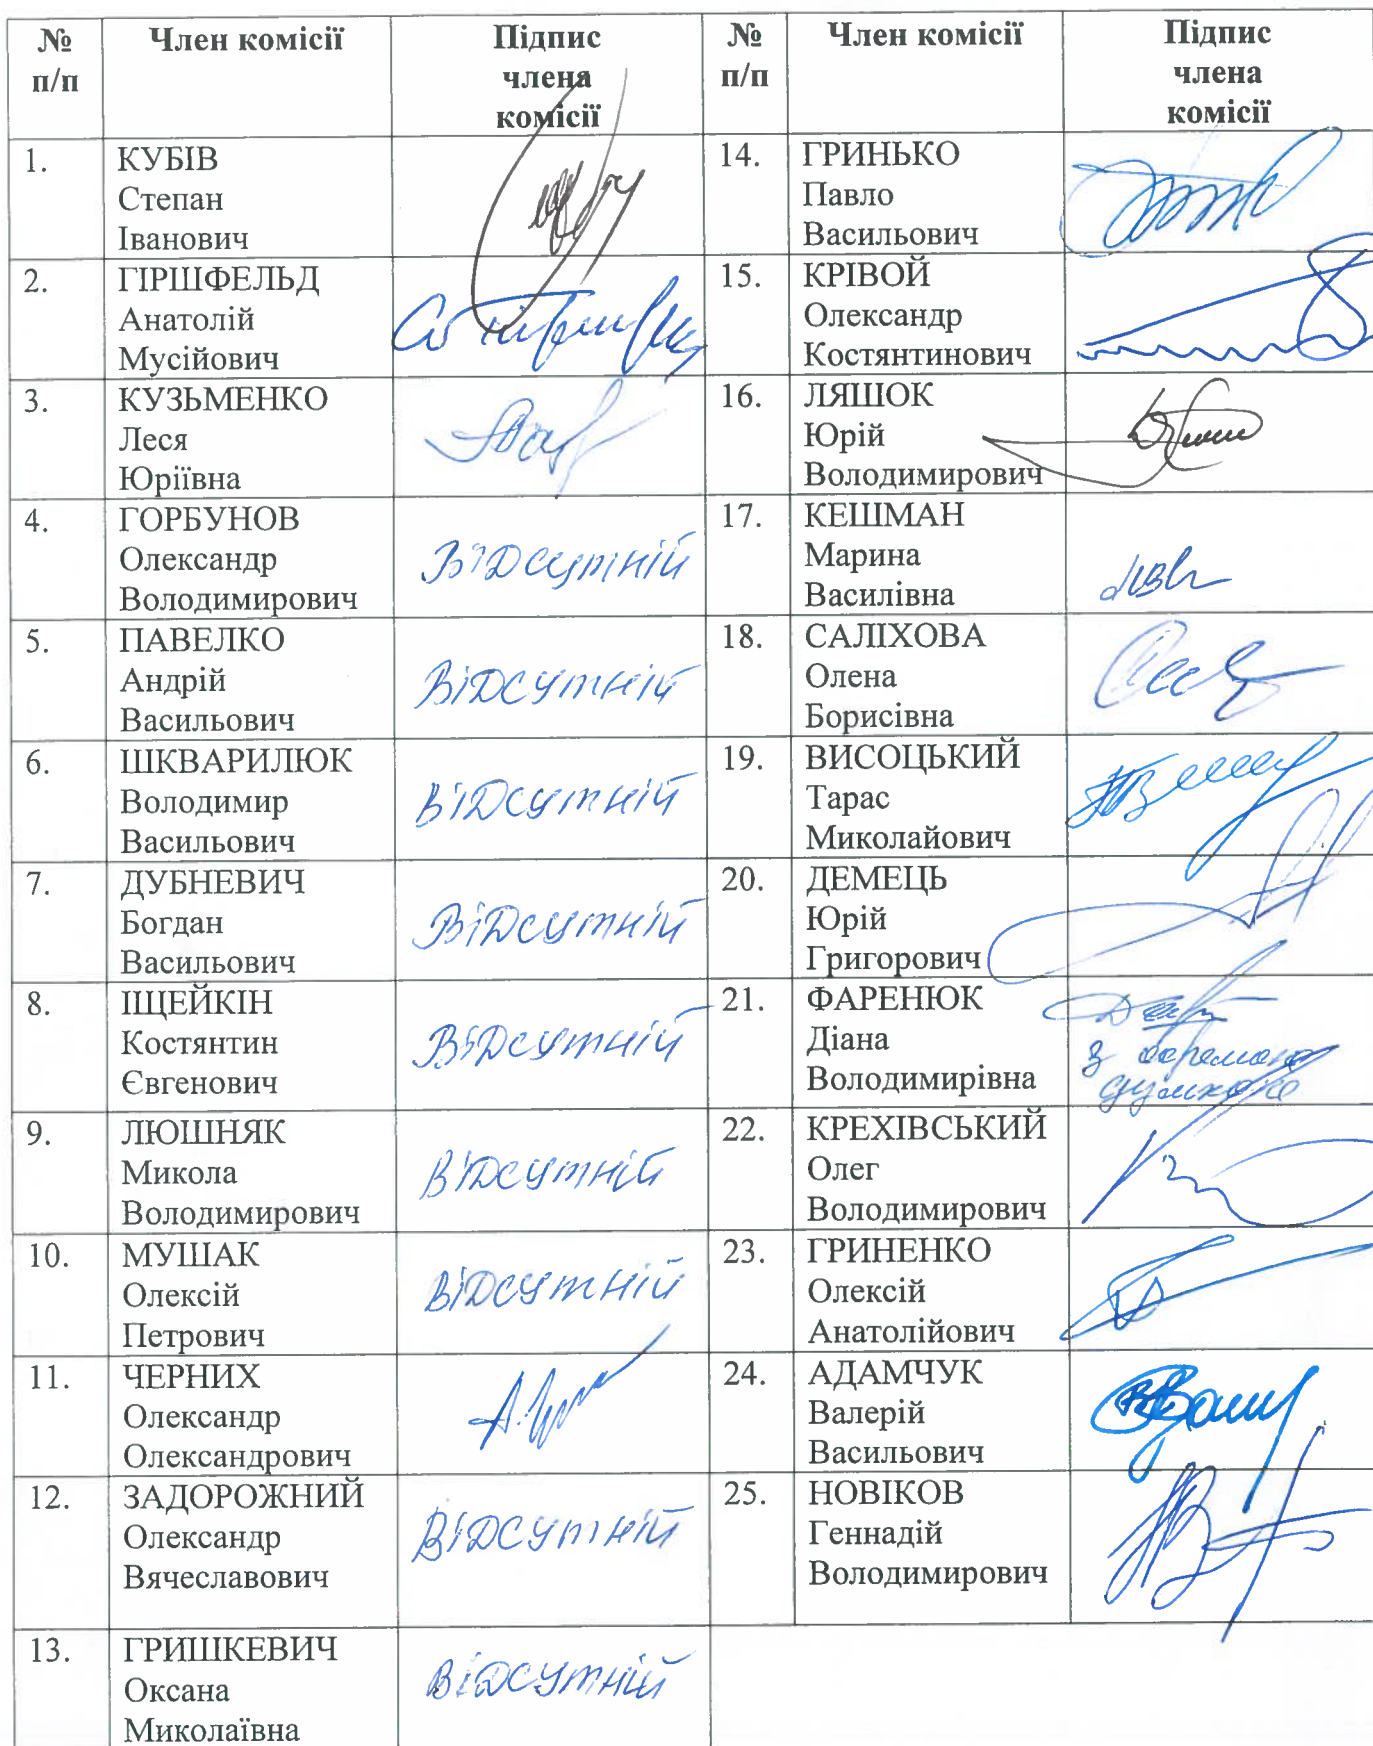 № п/п
Член комісії
Підпис члена комісії
№ п/п
Член комісії
Підпис члена комісії
1.
КУБІВ
Степан
Іванович
2.
ГІРШФЕЛЬД
Анатолій
Мусійович
3.
КУЗЬМЕНКО
Леся
Юріївна
4.
ГОРБУНОВ
Олександр
Володимирович
Відсутній
5.
ПАВЕЛКО
Андрій
Васильович
Відсутній
6.
ШКВАРИЛЮК
Володимир
Васильович
Відсутній
7.
ДУБНЕВИЧ
Богдан
Васильович
Відсутній
8.
ІЩЕЙКІН
Костянтин
Євгенович
Відсутній
9.
ЛЮШНЯК
Микола
Володимирович
Відсутній
10.
МУШАК
Олексій
Петрович
Відсутній
11.
ЧЕРНИХ
Олександр
Олександрович
12.
ЗАДОРОЖНИЙ
Олександр
Вячеславович
Відсутній
13.
ГРИШКЕВИЧ
Оксана
Миколаївна
Відсутній
14.
ГРИНЬКО
Павло
Васильович
15.
КРІВОЙ
Олександр
Костянтинович
16.
ЛЯШОК
Юрій
Володимирович
17.
КЕШМАН
Марина
Василівна
18.
САЛІХОВА
Олена
Борисівна
19.
ВИСОЦЬКИЙ
Тарас
Миколайович
20.
ДЕМЕЦЬ
Юрій
Григорович
21.
ФАРЕНЮК
Діана
Володимирівна
з окремою
думкою
22.
КРЕХІВСЬКИЙ
Олег
Володимирович
23.
ГРИНЕНКО
Олексій
Анатолійович
24.
АДАМЧУК
Валерій
Васильович
25.
НОВІКОВ
Геннадій
Володимирович